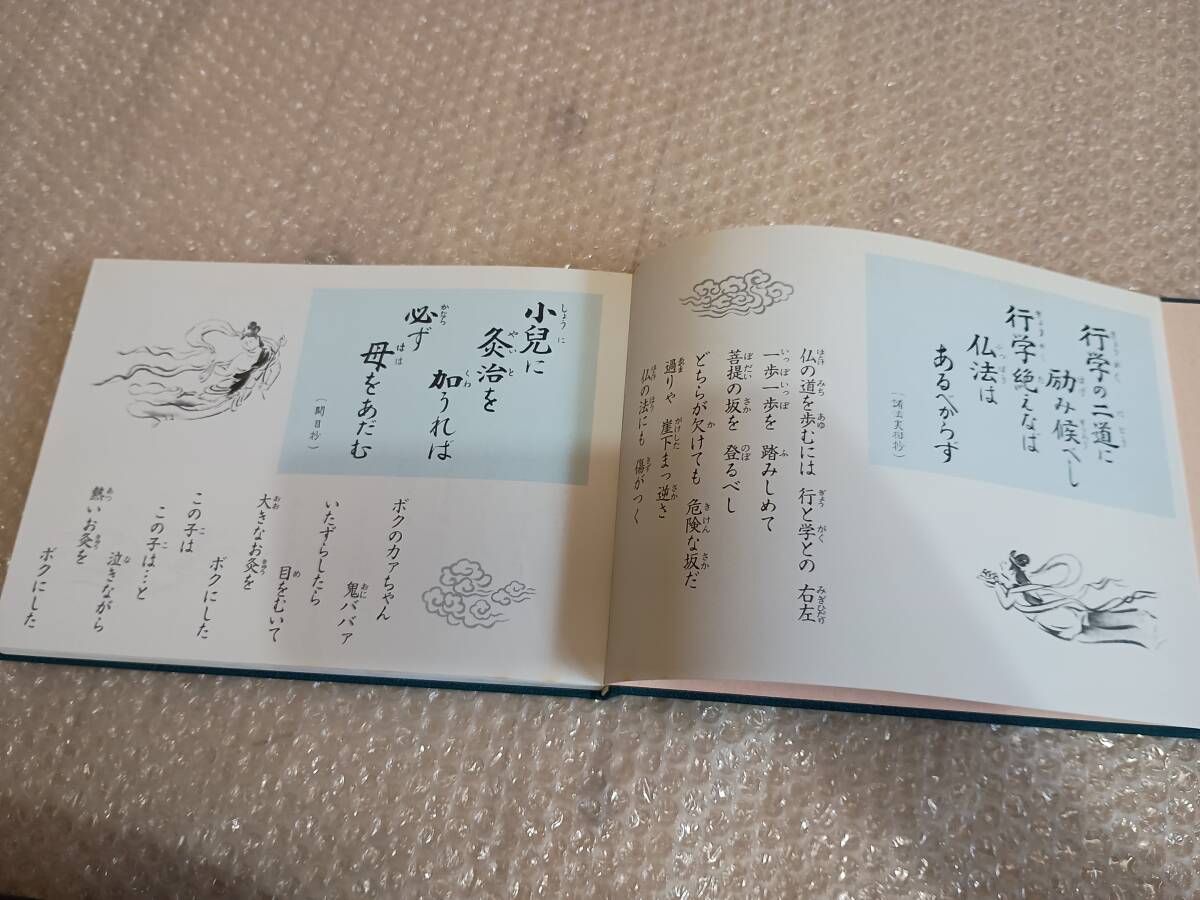 行学の二道に
励み候べし
行学絶えなば
仏法は
あるべからず
(諸法実相抄)
仏の道を歩むには 行と学との 右左
一歩一歩を 踏みしめて
菩提の坂を 登るべし
どちらが欠けても 危険な坂だ
過りや 崖下まっ逆さ
仏の法にも 傷がつく
小兒に
灸治を
加うれば
必ず
母をあだむ
(開目抄)
ボクのカァちゃん
鬼ババァ
いたずらしたら
目をむいて
大きなお灸を
ボクにした
この子は
この子は…と
泣きながら
熱いお灸を
ボクにした